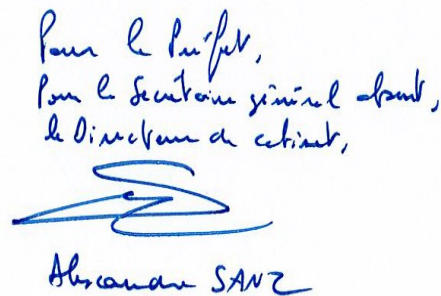 Pour le Préfet,
Pour le Secrétaire général absent,
le Directeur de cabinet,
Alexandre SANZ